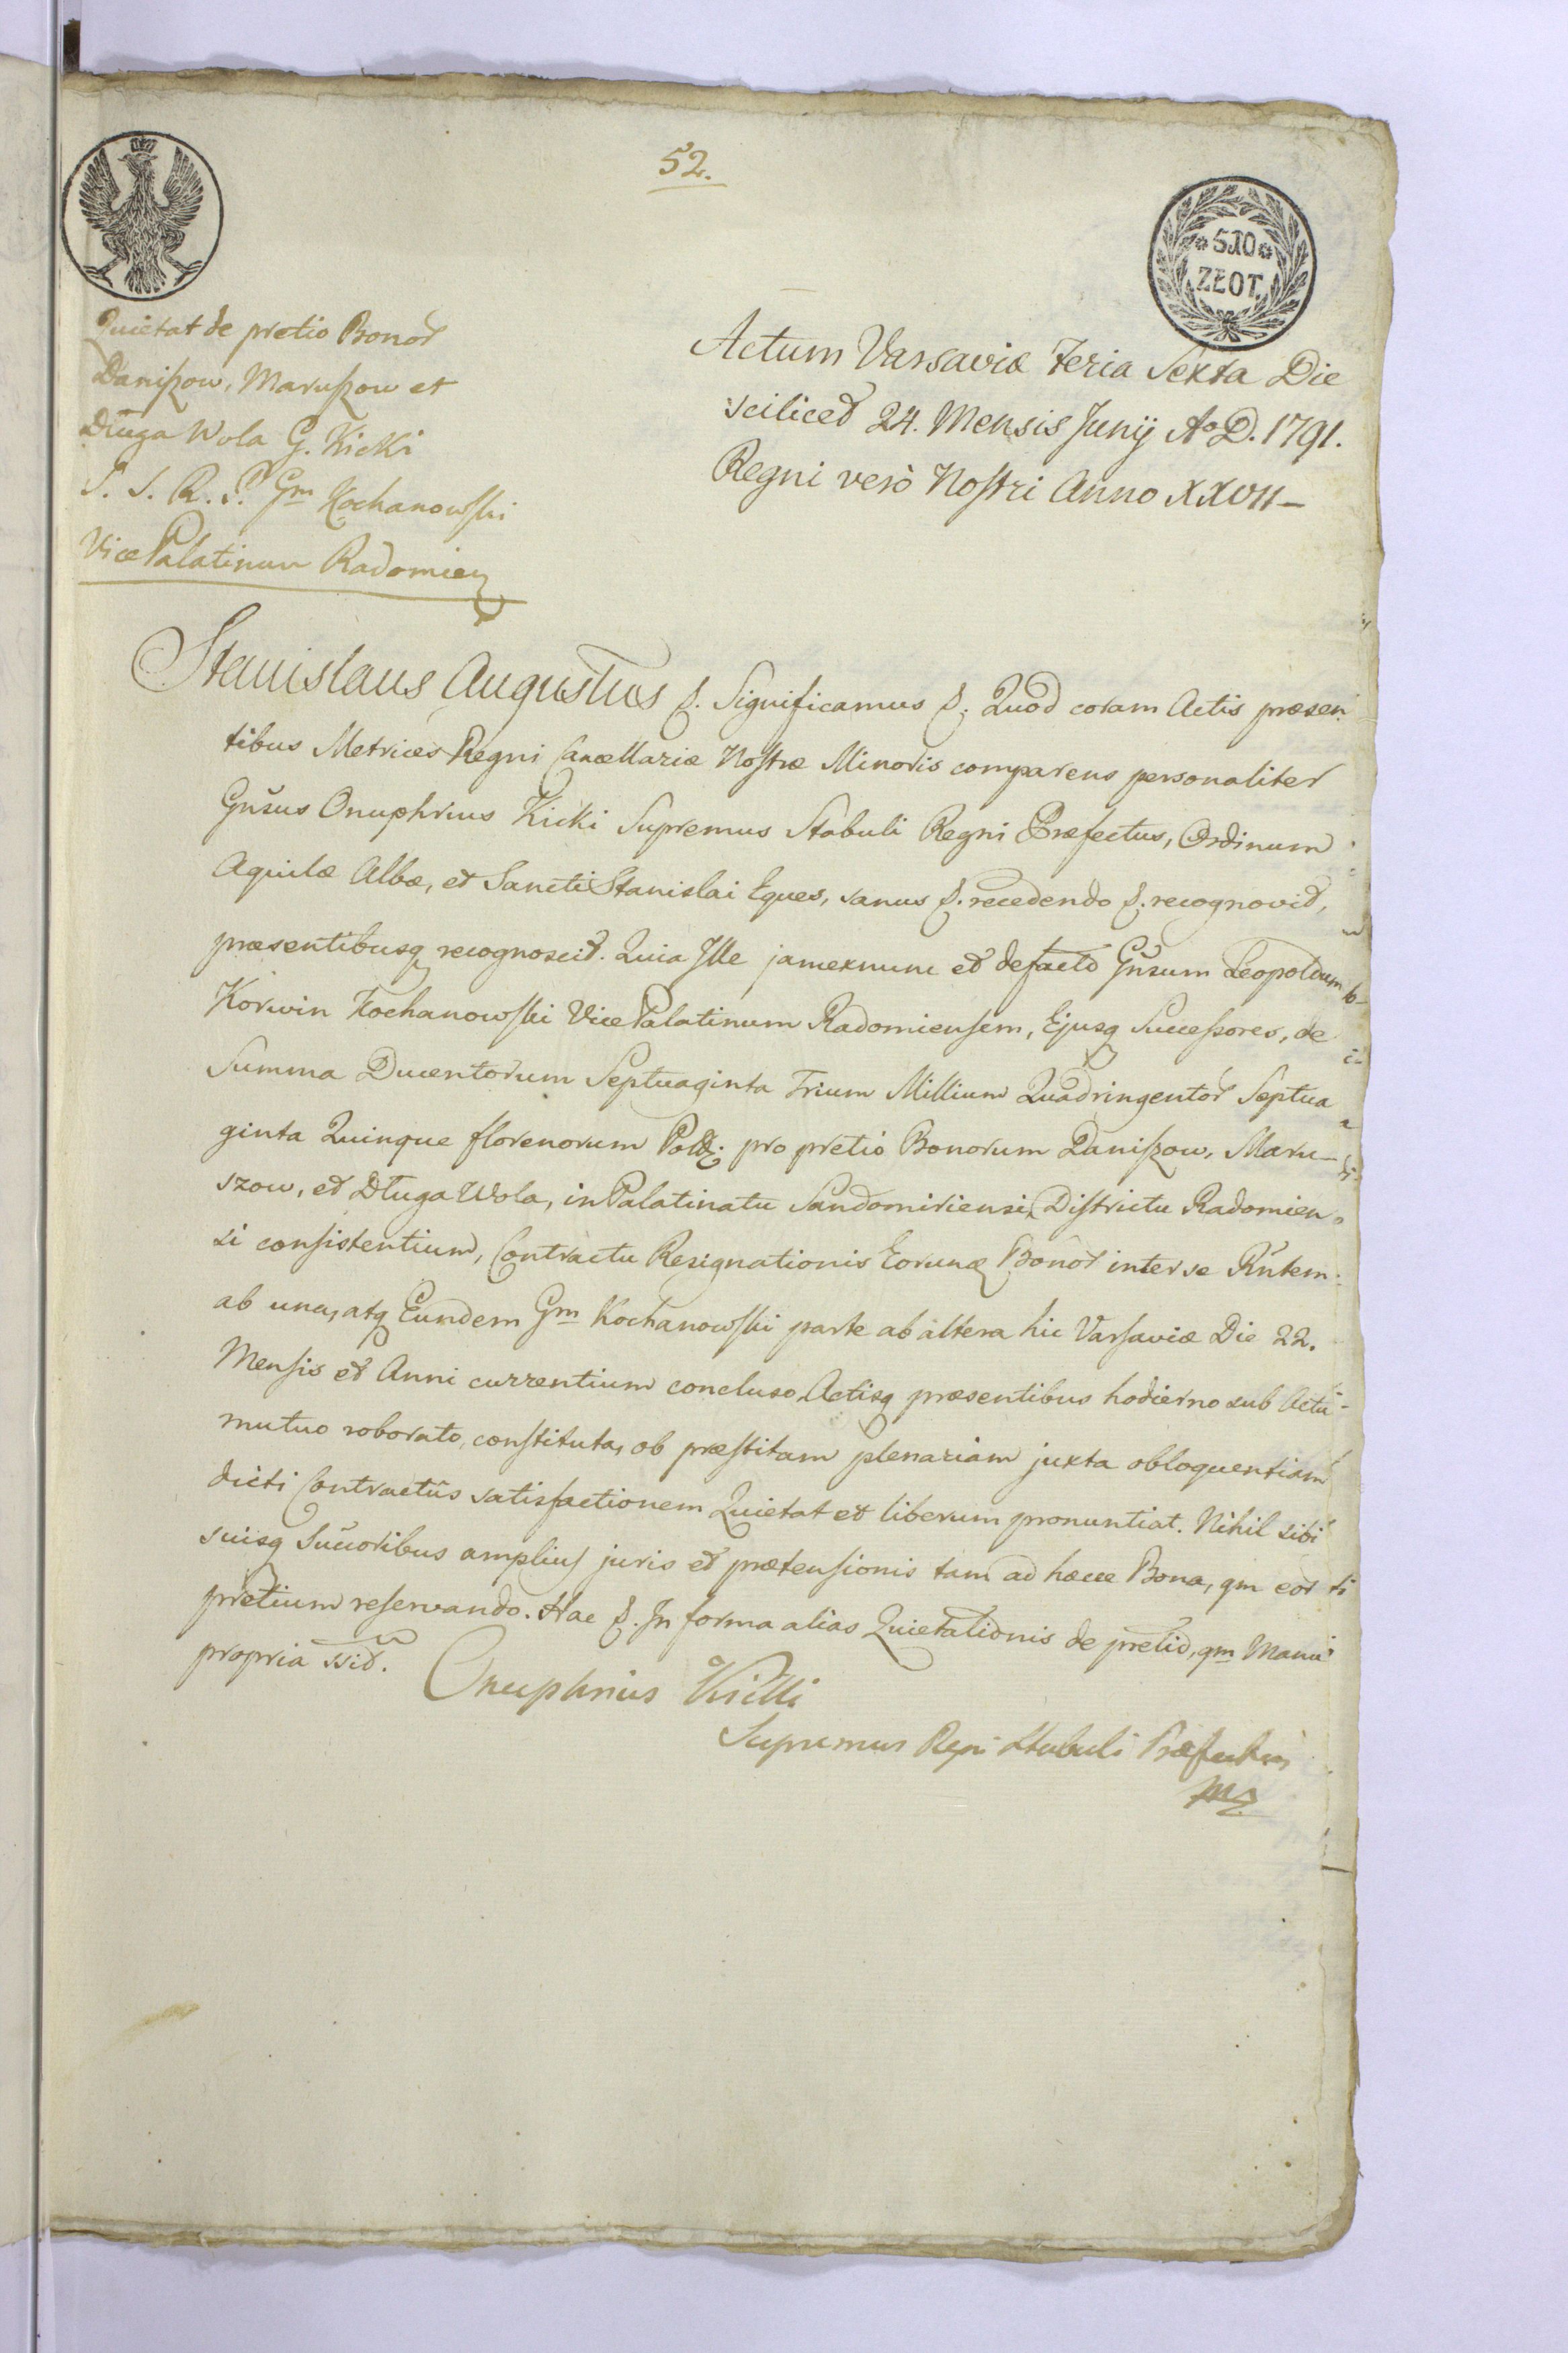 52.
510
ZŁOT.
Quietat de pretio Bonor
Daniszow, Maruszow et
Długa Wola G. Kicki
S. S. R. P. Gm Kochanowski
Vice Palatinum Radomien
Actum Varsaviæ Feria Sexta Die
scilicet 24. Mensis Junij Ao D. 1791.
Regni verò Nostri Anno XXVII–
Stanislaus Augustus &. Significamus &. Quod coram Actis præsen
tibus Metrices Regni Cancellariæ Nostræ Minoris comparens personaliter
Gnsus Onuphrius Kicki Supremus Stabuli Regni Præfectus, Ordinum
Aquilæ Albæ, et Sancti Stanislai Eques, sanus &. recedendo &. recognovit,
præsentibusq recognoscit. Quia Ille jamexnunc et defacto Gnsum Leopoldum
Korwin Kochanowski Vice Palatinum Radomiensem, Ejusq Successores, de
Summa Ducentorum Septuaginta Trium Millium Quadringentor Septua
ginta Quinque florenorum Pold. pro pretio Bonorum Daniszow, Maru–
szow, et Długa Wola, in Palatinatu Sandomiriensi, Districtu Radomien
si consistentium, Contractu Resignationis Eorundq Bonor inter se Rntem
ab una, atq Eundem Gm Kochanowski parte ab altera hic Varsaviæ Die 22.
Mensis et Anni currentium concluso, Actisq præsentibus hodierno sub Actu
mutuo roborato, constituta, ob præstitam plenariam juxta obloquentiam
dicti Contractûs satisfactionem Quietat et liberum pronuntiat. Nihil sibi
suisq Succoribus amplius juris et prætensionis tam ad hæcce Bona, qm eor
pretium reservando. Hac &. In forma alias Quietationis de pretio, qm Manu
propria ssit.
Onuphrius Kicki
Supremus Regni Stabuli Præfectus
mp